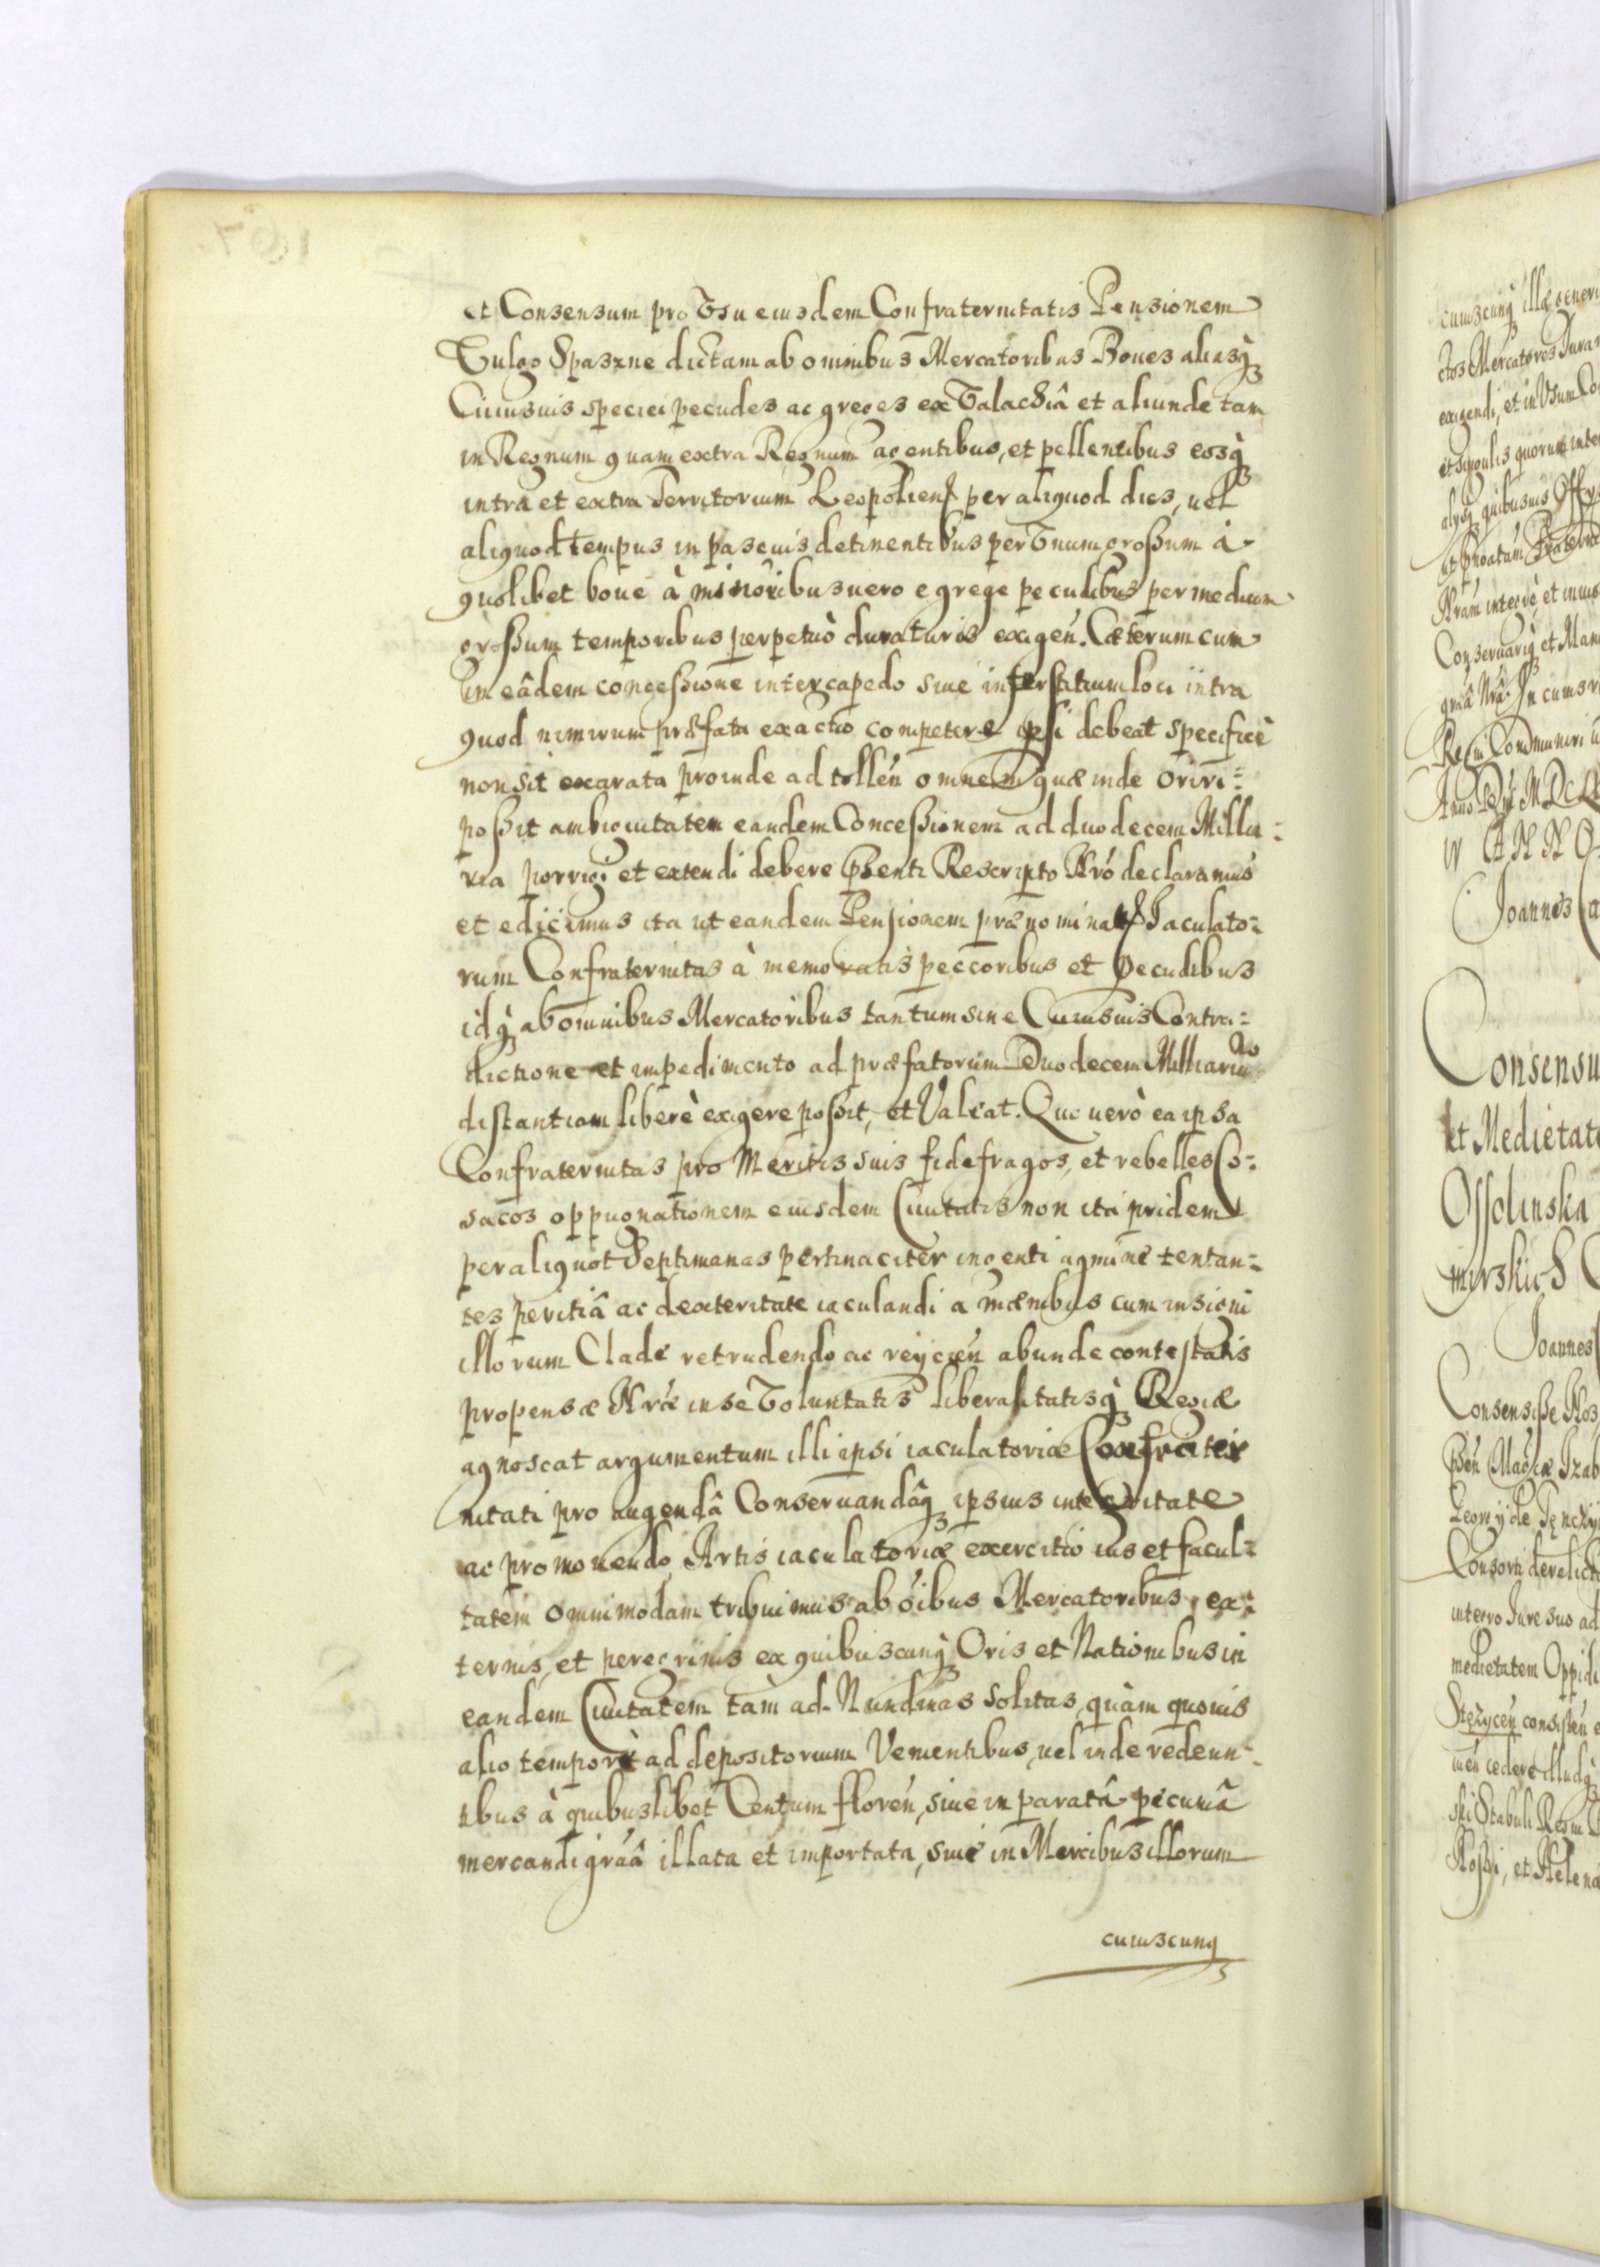 et Consensum pro Vsu eiusdem Confraternitatis Pensionem
Vulgo Spaszne dictam ab omnibus Mercatoribus Boues aliasq́
Cuiusuis speciei pecudes ac greges ex Valachiâ et aliunde tam
in Regnum quam extra Regnum agentibus, et pellentibus eosq́
intra et extra Territorium Leopolien per aliquod dies, uel
aliquod tempus in pascuis detinentibus per Vnum grossum à
quolibet boue à minoribus uero e grege pecudibus per medium
grossum temporibus perpetuò duraturis exigeń. Cæterum cum
in eâdem concessione intercapedo siue interstitium loci intra
quod nimirum præfata exactio competere ipsi debeat specificè
non sit exarata proinde ad tolleń omnem quæ inde oriri=
possit ambiguitatem eandem Concessionem ad duodecem Millia=
ria porrigi et extendi debere p̃senti Rescripto Nró declaramus
et edicimus ita ut eandem Pensionem prænominat Jaculato=
rum Confraternitas à memoratis peccoribus et Pecudibus
idq́ ab omnibus Mercatoribus tantum sine Cuiusuis Contra=
dictione et impedimento ad præfatorum Duodecem Milliariũ
distantiam liberè exigere possit, et Valeat. Quo uerò ea ipsa
Confraternitas pro Meritis suis fidefragos, et rebelles Co=
sacos oppugnationem eiusdem Ciuitatis non ita pridem
per aliquot Septimanas pertinaciter ingenti agmine tentan=
tes peritiâ ac dexteritate iaculandi a mænibus cum insigni
illorum Clade retrudendo ac reijcień abunde contestatis
propensæ Nræ in se Voluntatis liberalitatisq́ Regiæ
agnoscat argumentum illi ipsi iaculatoriæ Confrater
nitati pro augendâ Conseruandâq́ ipsius integritate
ac promouendo Artis iaculatoriæ exercitio ius et facul=
tatem omnimodam tribuimus ab oĩbus Mercatoribus, ex=
ternis, et peregrinis ex quibuscunq́ Oris et Nationibus in
eandem Ciuitatem tàm ad Nundinas solitas, quàm quouis
alio tempore ad depositorium Venientibus, uel inde redeun=
tibus à quibuslibet Centum floreń, siue in paratâ pecuniâ
mercandi grãâ illata et importata, siue in Mercibus illorum
cuiuscunq́
cuiuscunq́ illæ generis
ctos Mercatores Dura
exigendi, et in Vsum Co
et singulis quorum inte
alijsq́ quibusuis Offi
Nram integrè, et inuio
Conseruariq́ et Man
grãâ Nrâ. In cuius r
Regni Communiri
Anno Dñi MDCL
IV ANNO
Joannes Ca
Consensu
et Medietate
Ossolinska
mirskich
Joannes
Consensisse Nos
Georgij de Tęnczy
Consorti derelict
integro Jure suo ad
medietatem Oppidi
Stęzyceń consisteń
ski Stabuli Regni
Nostri, et Helena